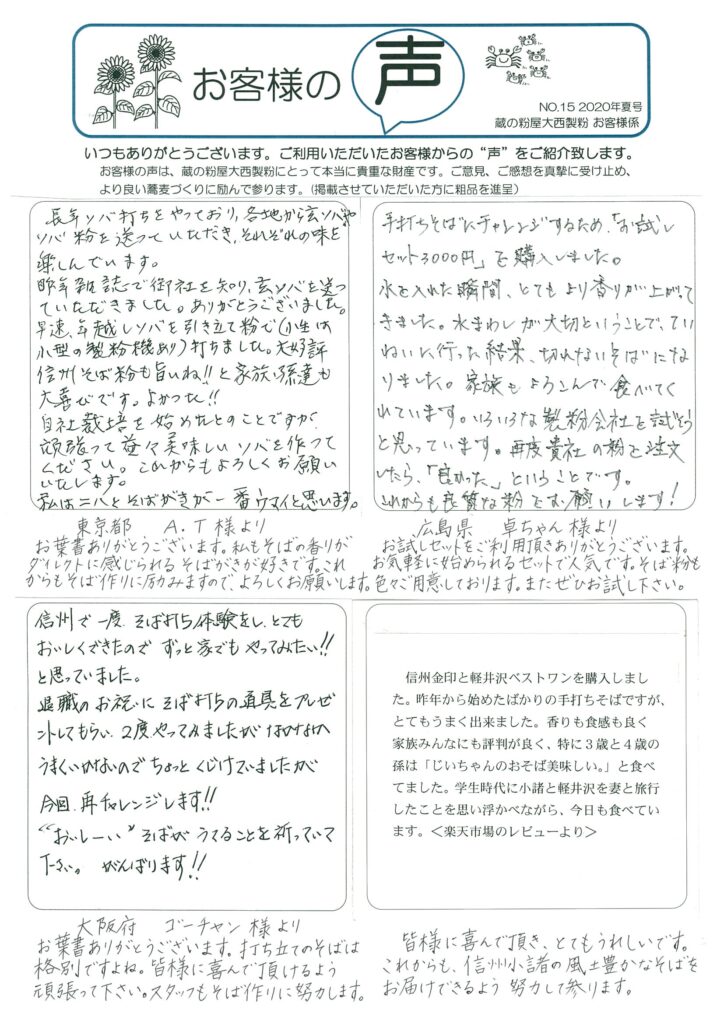 お客様の 声
NO.15 2020年夏号
蔵の粉屋大西製粉 お客様係
いつもありがとうございます。ご利用いただいたお客様からの “声” をご紹介致します。
お客様の声は、蔵の粉屋大西製粉にとって本当に貴重な財産です。ご意見、ご感想を真摯に受け止め、
より良い蕎麦づくりに励んで参ります。(掲載させていただいた方に粗品を進呈)
長年ソバ打ちをやっており、各地から玄ソバや
ソバ粉を送っていただき、それぞれの味を
楽しんでいます。
昨年雑誌で御社を知り、玄ソバを送っ
ていただきました。ありがとうございました。
早速、年越しソバを引き立て粉で(小生は
小型の製粉機あり)打ちました。大好評
信州そば粉も旨いね!!と家族、孫達も
大喜びです。よかった!!
自社栽培を始めたとのことですが
頑張って益々美味しいソバを作って
ください。これからもよろしくお願い
いたします。
私は二八とそばがきが一番ウマイと思います。
東京都 A.T 様より
お葉書ありがとうございます。私もそばの香りが
ダイレクトに感じられるそばがきが好きです。これ
からもそば作りに励みますので、よろしくお願いします。
手打ちそばにチャレンジするため、「お試し
セット3000円」を購入しました。
水を入れた瞬間、とてもより香りが上がって
きました。水まわしが大切ということで、てい
ねいに行った結果、切れないそばにな
りました。家族もよろこんで食べてく
れています。いろいろな製粉会社を試そう
と思っています。再度貴社の粉を注文
したら、「良かった」ということです。
これからも良質な粉をお願いします!
広島県 卓ちゃん様より
お試しセットをご利用頂きありがとうございます。
お気軽に始められるセットで人気です。そば粉も
色々ご用意しております。またぜひお試し下さい。
信州で一度 そば打ち体験をし、とても
おいしくできたので ずっと家でもやってみたい!!
と思っていました。
退職のお祝いに そば打ちの道具をプレゼ
ントしてもらい 2度やってみましたが なかなか
うまくいかないので ちょっと くじけていましたが
今回、再チャレンジします!!
“おいしーい” そばが うてることを祈っていて
下さい。 がんばります!!
大阪府 ゴーチャン様より
お葉書ありがとうございます。打ち立てのそばは
格別ですよね。皆様に喜んで頂けるよう
頑張って下さい。スタッフもそば作りに努力します。
信州金印と軽井沢ベストワンを購入しまし
た。昨年から始めたばかりの手打ちそばですが、
とてもうまく出来ました。香りも食感も良く
家族みんなにも評判が良く、特に3歳と4歳の
孫は「じいちゃんのおそば美味しい。」と食べ
てました。学生時代に小諸と軽井沢を妻と旅行
したことを思い浮かべながら、今日も食べてい
ます。<楽天市場のレビューより>
皆様に喜んで頂き、とてもうれしいです。
これからも、信州小諸の風土豊かなそばを
お届けできるよう 努力して参ります。